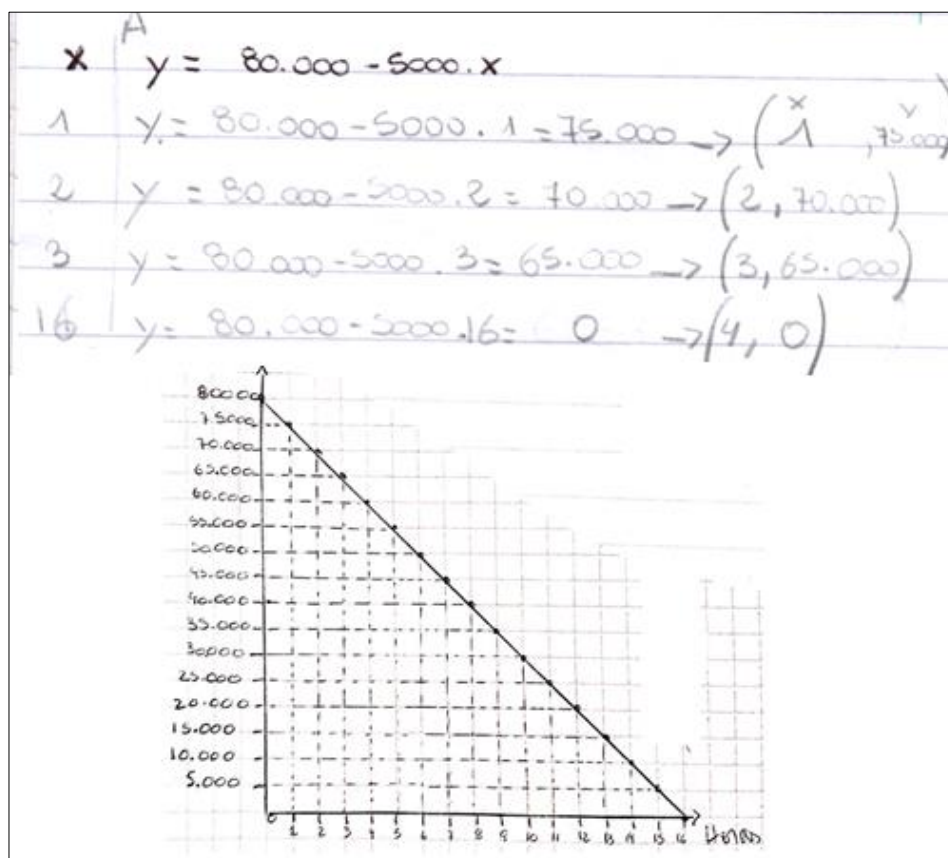 A
x y = 80.000 - 5000.x
1 y = 80.000 - 5000.1 = 75.000 → (1, 75.000)
x y
2 y = 80.000 - 5000.2 = 70.000 → (2, 70.000)
3 y = 80.000 - 5000.3 = 65.000 → (3, 65.000)
16 y = 80.000 - 5000.16 = 0 → (4, 0)
80000
75000
70.000
65.000
60.000
55.000
50.000
45.000
40.000
35.000
30.000
25.000
20.000
15.000
10.000
5.000
0 1 2 3 4 5 6 7 8 9 10 11 12 13 14 15 16 Horas